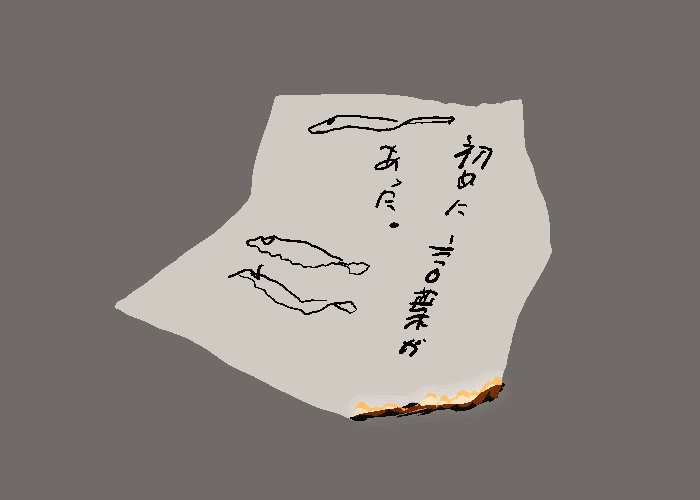 初めに言葉が
あった。